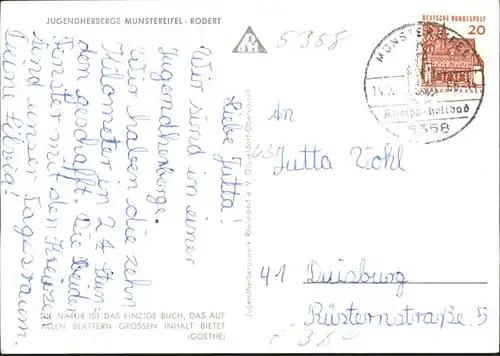 JUGENDHERBERGE MÜNSTEREIFEL - RODERT
5358
Liebe Jutta!
Wir sind in einer
Jugendherberge.
Wir haben die zehn
Kilometer in 2 ¼ Stun-
den geschafft. Die beiden
Fenster mit den Kreuzen
sind unser Tagesraum.
Deine Silvia!
DIE NATUR IST DAS EINZIGE BUCH, DAS AUF
ALLEN BLÄTTERN GROSSEN INHALT BIETET
(GOETHE)
Jugendherbergswerk Rheinland e. V. Düsseldorf-Oberkassel
DEUTSCHE BUNDESPOST
20
MÜNSTEREIFEL
Kneipp-heilbad
5358
An
Jutta Vohl
41 Duisburg
Rüsternstraße 5